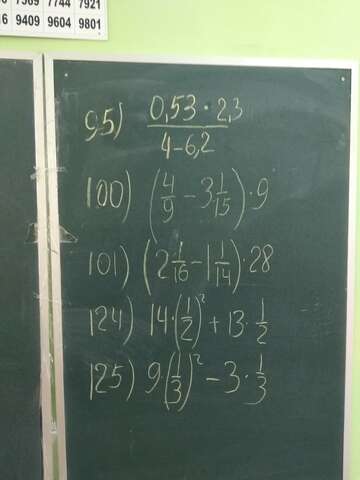 7569 7744 7921
16 9409 9604 9801
95) (0,53 · 2,3) / (4 - 6,2)
100) (4/9 - 3 1/15) · 9
101) (2 1/16 - 1 1/14) · 28
124) 14 · (1/2)² + 13 · 1/2
125) 9 (1/3)² - 3 · 1/3